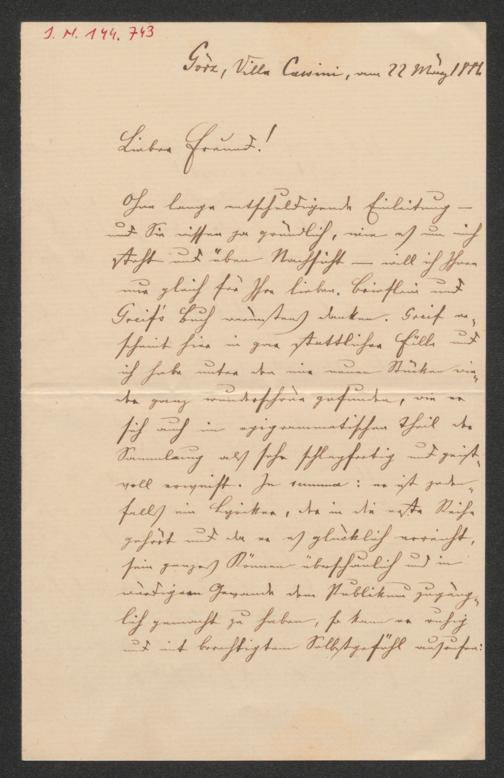 J. N. 144.743
Görz, Villa Cassini, am 22 März 1886
Lieber Freund!
Ohne lange entschuldigende Einleitung –
und Sie wissen ja gründlich, wie es um mich
steht und üben Nachsicht – will ich Ihnen
nur gleich für Ihre lieben Brieflein und
Greif's Buch wärmstens danken. Greif er-
scheint hier in gar stattlicher Fülle und
ich habe unter den mir neuen Stücken wie-
der ganz wunderschöne gefunden, wie er
sich auch im epigrammatischen Theil der
Sammlung als sehr schlagfertig und geist-
voll erweist. In summa: er ist jeden-
falls ein Lyriker, der in die erste Reihe
gehört und da er es glücklich erreicht,
sein ganzes Können überschaulich und in
würdigem Gewande dem Publikum zugäng-
lich gemacht zu haben, so kann er ruhig
und mit berechtigtem Selbstgefühl ausrufen: